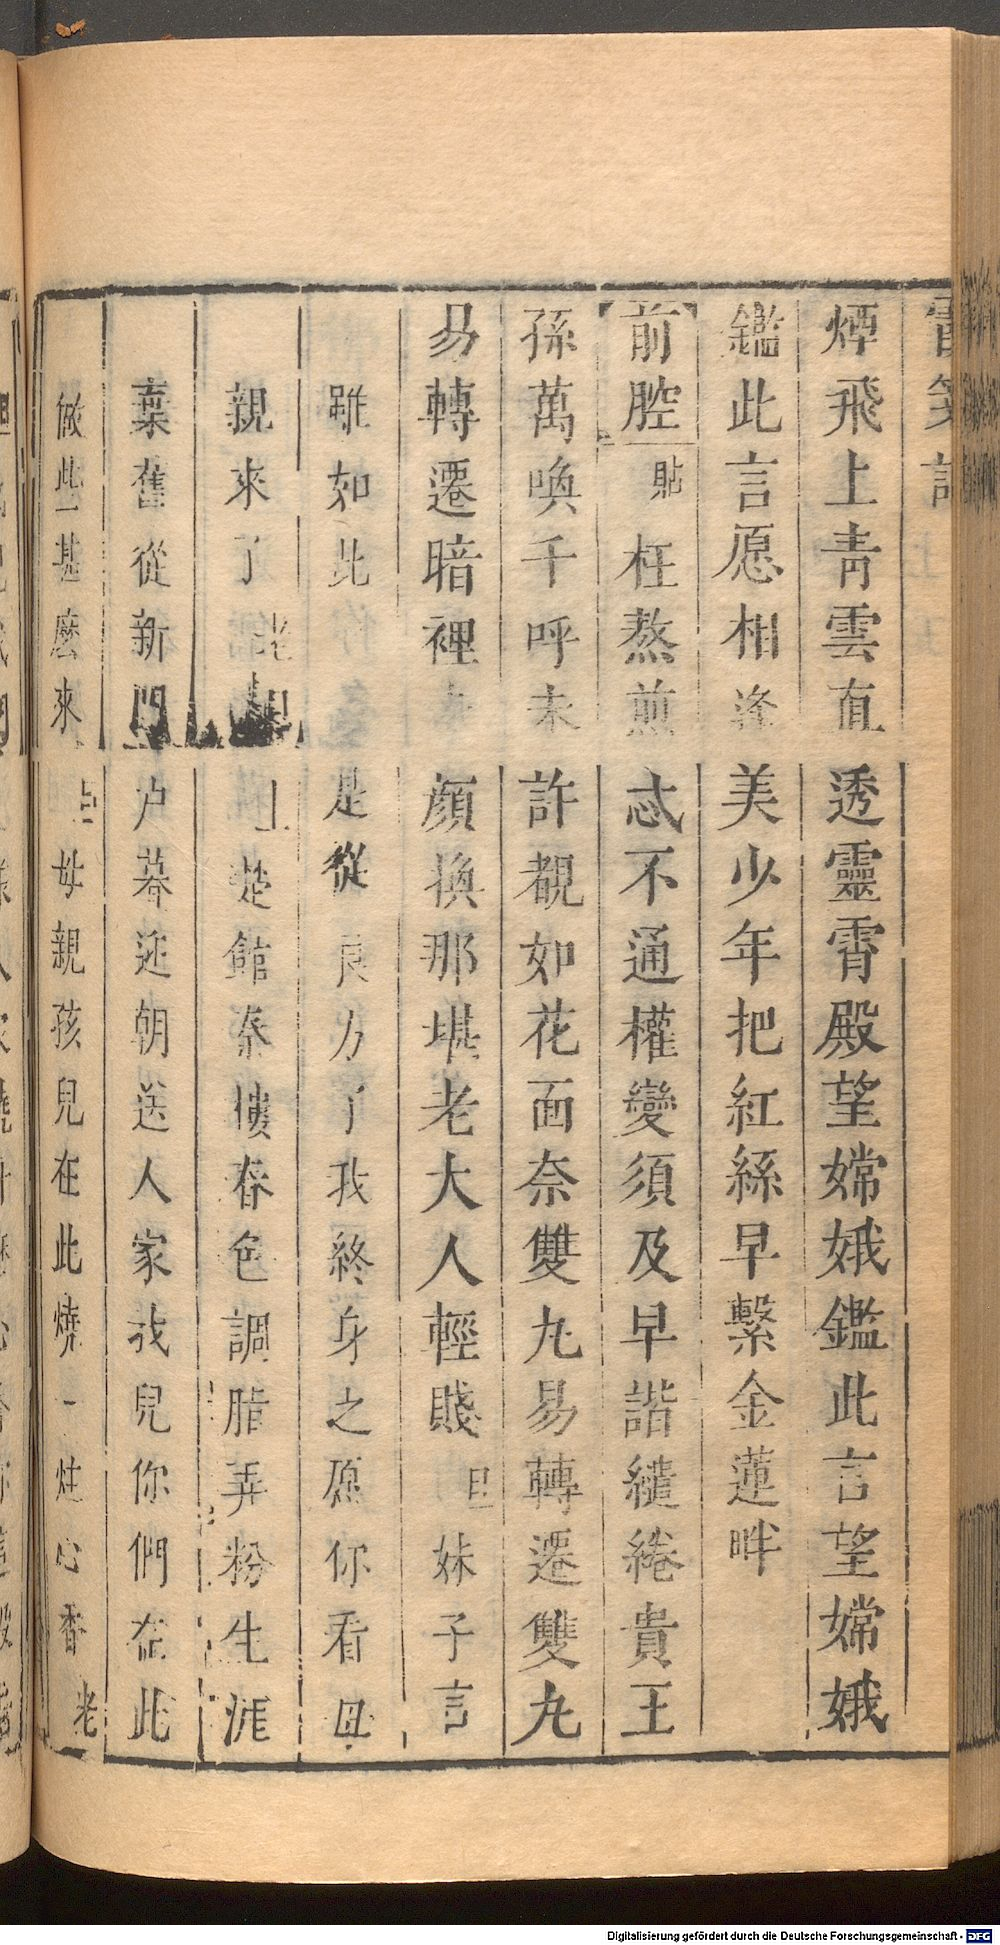 煙飛上靑雲直透靈霄殿望嫦娥鑑此言望嫦娥
鑑此言愿相逢美少年把紅絲早繫金蓮畔
前腔 貼 枉熬煎忒不通權變須及早諧繾綣貴王
孫萬喚千呼未許覩如花面奈雙九易轉遷雙九
易轉遷暗裡 顔換那堪老大人輕賤 旦 妹子言
雖如此 是從良方了我終身之愿你看母
親來了 老旦上 楚館秦樓春色調脂弄粉生涯
棄舊從新門户暮迎朝送人家我兒你們在此
做此甚麽來 占 母親孩兒在此燒一炷心香 老
Digitalisierung gefördert durch die Deutsche Forschungsgemeinschaft - DFG